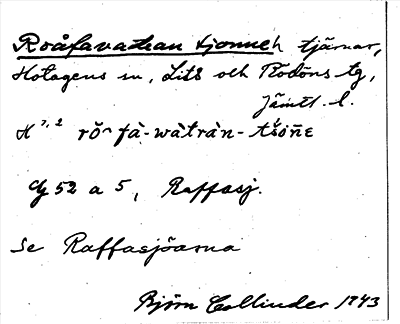 Roåfavatran tjonneh tjärnar,
Hotagens sn, Lits och Rödöns tg,
Jämtl. l.
H 7,2 rō̆ fà-wàtràn-tšóñɛ
G 52 a 5, Raffasj.
Se Raffasjöarna
Björn Collinder 1943